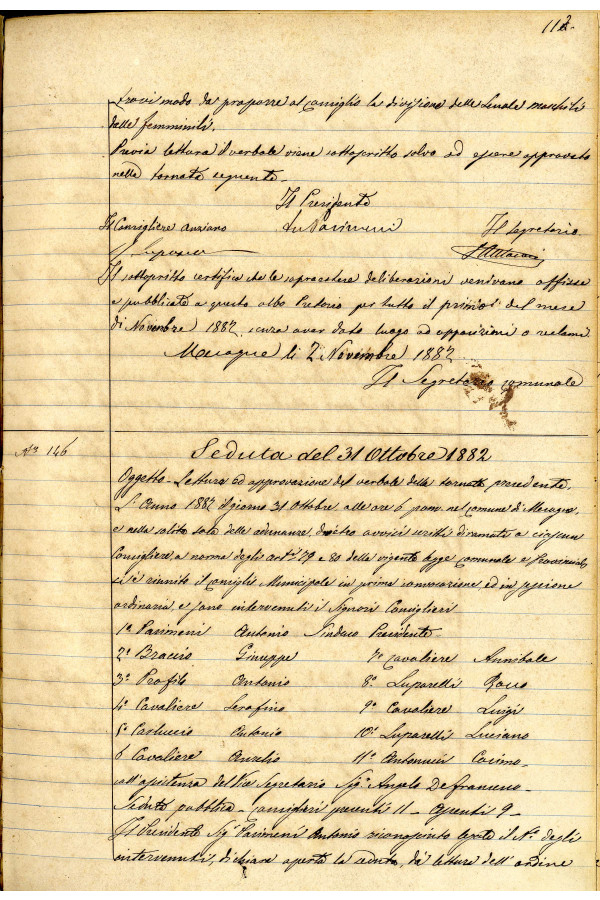 112
trovi modo da proporre al Consiglio la divisione delle Scuole maschili
dalle femminili.
Previa lettura il verbale viene sottoscritto salvo ad essere approvato
nella tornata seguente.
Il Presidente
Il Consigliere anziano A. Pavimeni Il Segretario
Il sottoscritto certifica che le soprascritte deliberazioni venivano affisse
e pubblicate a questo albo Pretorio per tutto il primo del mese
di Novembre 1882 senza aver dato luogo ad opposizioni o reclami
Mesagne li 2 Novembre 1882
Il Segretario comunale
N° 146 Seduta del 31 Ottobre 1882
Oggetto - Lettura ed approvazione del verbale della tornata precedente.
L'Anno 1882 il giorno 31 Ottobre alle ore 6 pom. nel comune di Mesagne,
e nella solita sala delle adunanze, dietro avvisi scritti diramati a ciascun
Consigliere a norma degli art. 79 e 80 della vigente legge comunale e Provinciale
si è riunito il Consiglio Municipale in prima convocazione ed in sessione
ordinaria, e sono intervenuti i Signori Consiglieri
1° Pavimeni Antonio Sindaco Presidente
2° Braccio Giuseppe 7° Cavaliere Annibale
3° Profilo Antonio 8° Luparelli Rocco
4° Cavaliere Serafino 9° Cavaliere Luigi
5° Carluccio Antonio 10° Luparelli Luciano
6 Cavaliere Aurelio 11° Antonucci Cosimo
coll'assistenza del Vice Segretario Sig. Angelo Defrancesco
Seduta pubblica - Consiglieri presenti 11 - Assenti 9 -
Il Presidente Sig. Pavimeni Antonio riconosciuto legale il N° degli
intervenuti, dichiara aperta la seduta, dà lettura dell'ordine